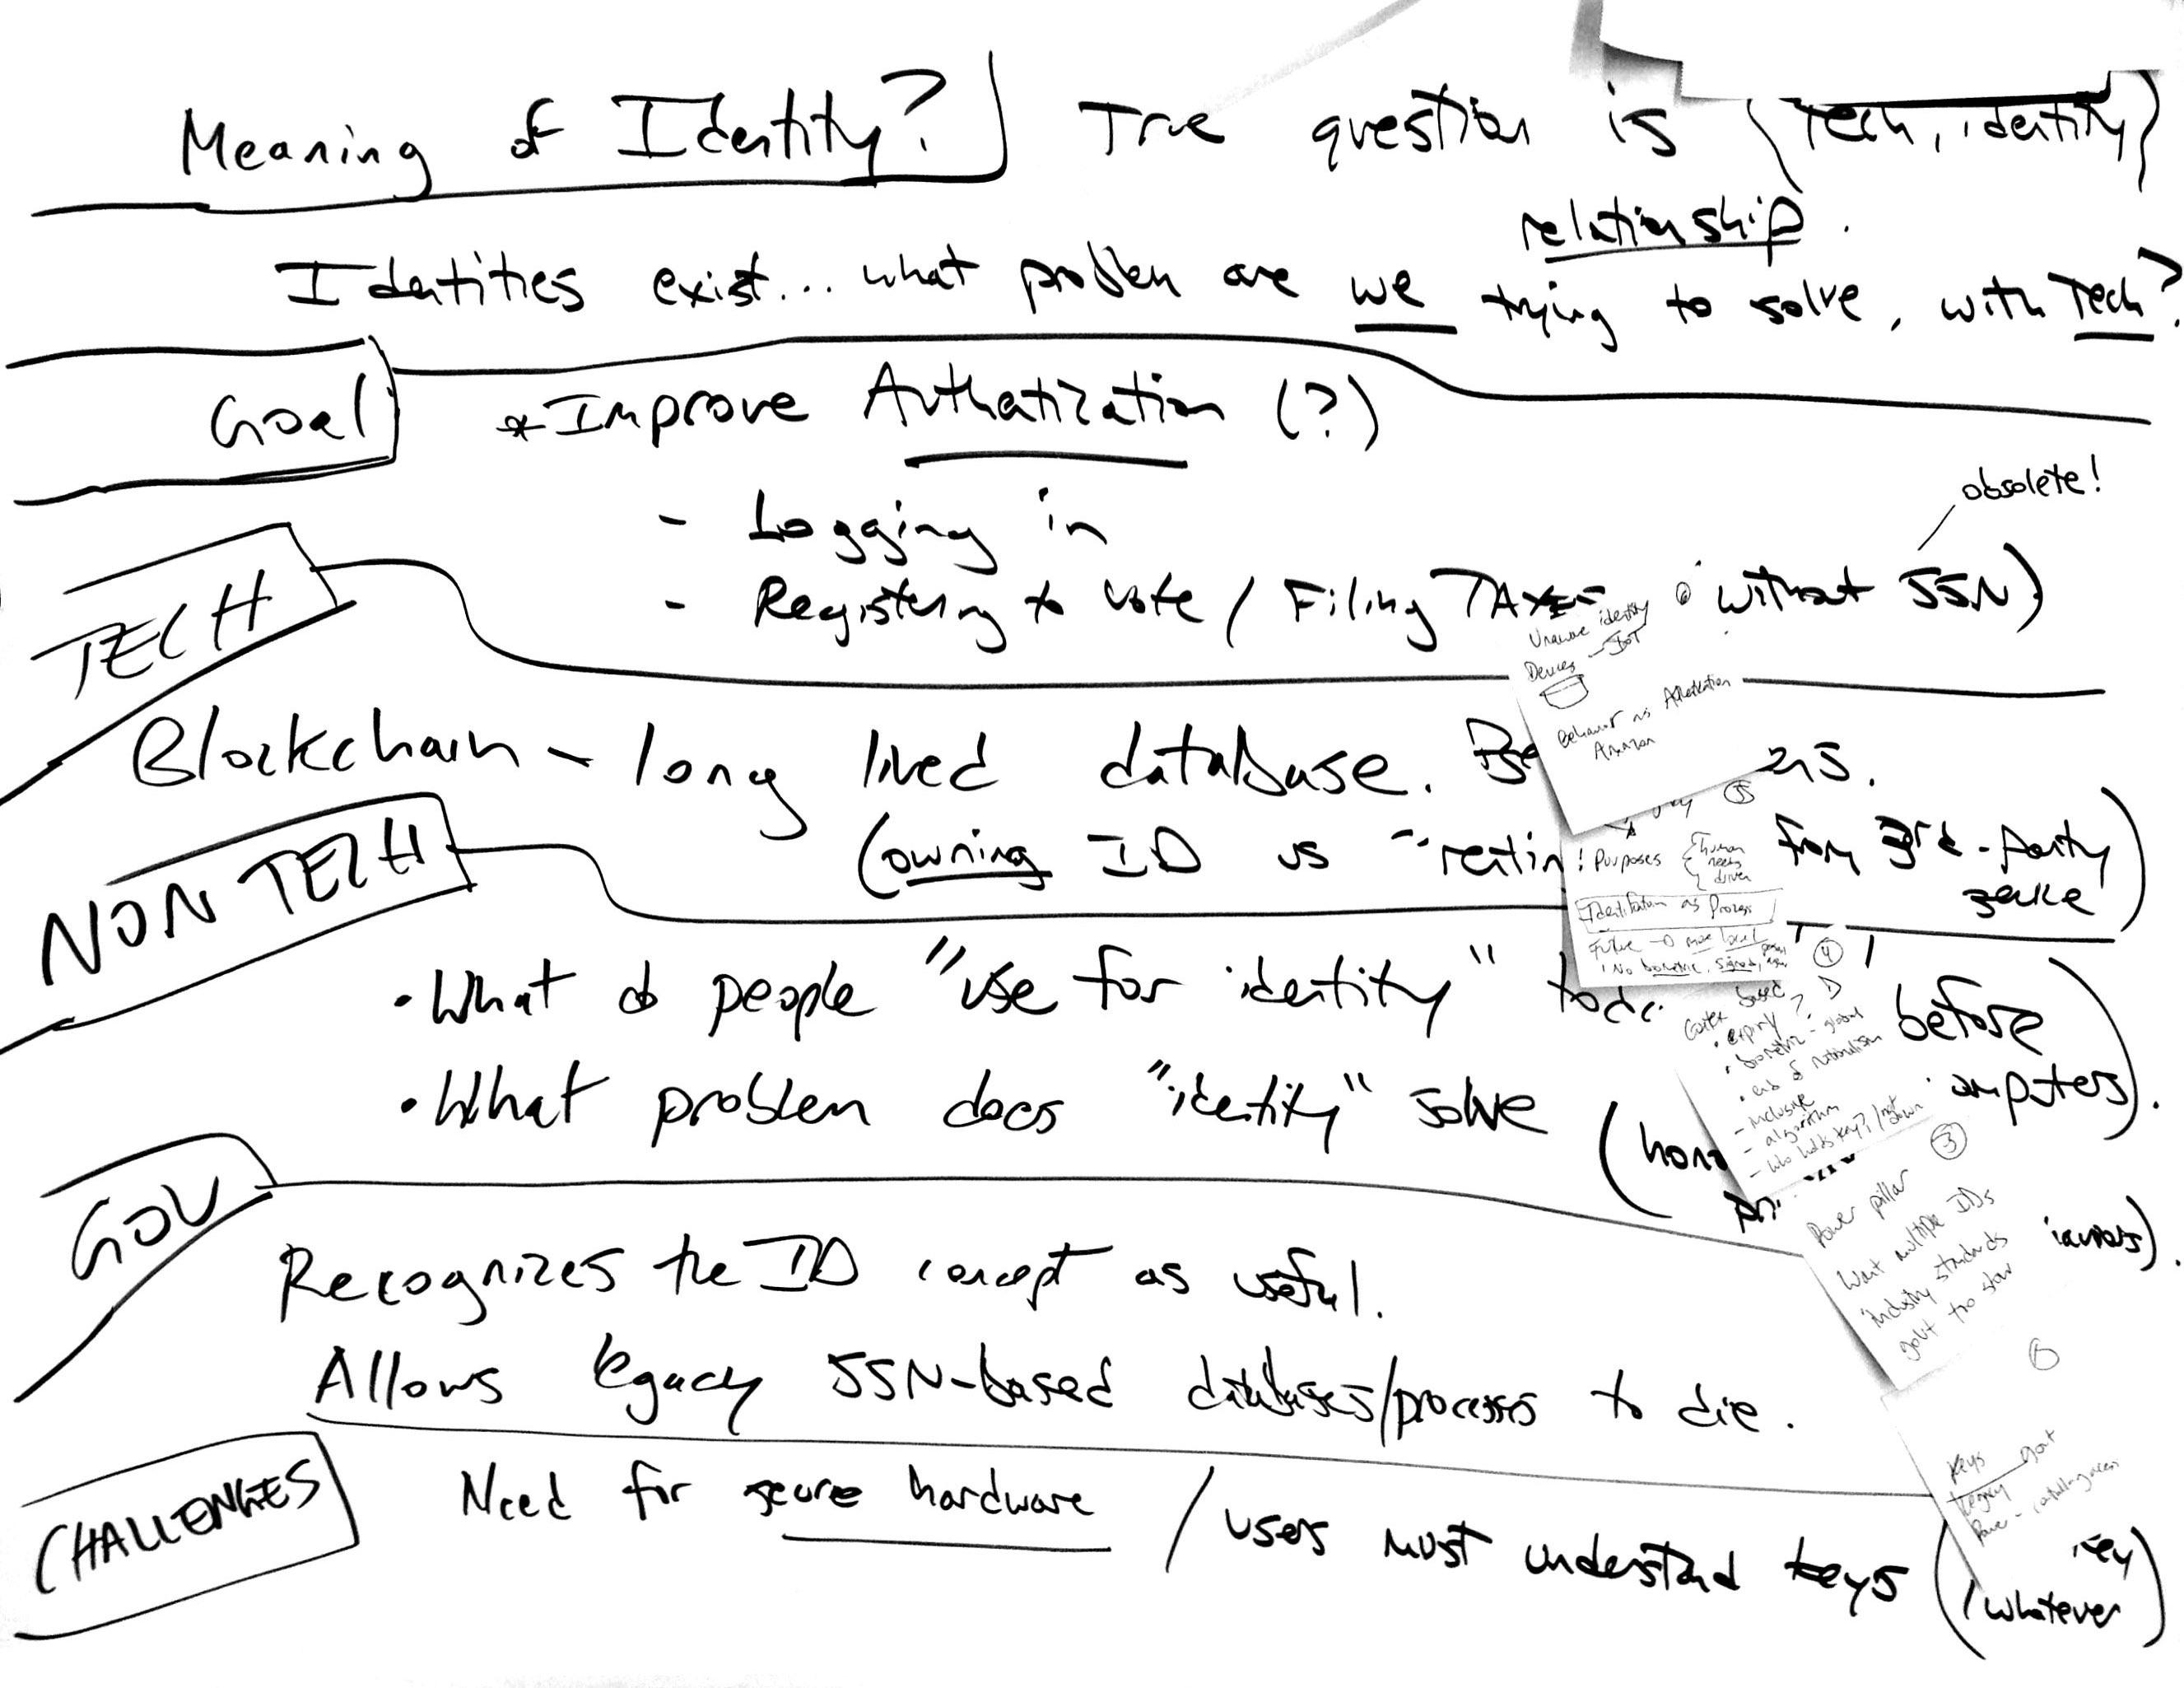 Meaning of Identity? True question is {Tech, identity}
relationship.
Identities exist... what problem are we trying to solve, with Tech?
Goal
*Improve Authatization (?)
- Logging in
obsolete!
- Registering to vote / Filing TAXES without SSN)
TECH
Blockchain - long lived database.
(owning ID vs "rentin from 3rd-party
NON TECH
• What do people "use for identity" before
• What problem does "identity" solve ( omputers).
GOV
Recognizes the ID concept as useful.
Allows legacy SSN-based databases/processes to die.
CHALLENGES
Need for secure hardware / users must understand keys ( key
/ whatever)
Unaware identity
Devices - IoT
Behavior as
Amazon
5
! Purposes { human needs driver
Identification as Process
Future → more local
! No biometric, signed,
4
based
• expiry?
• biometric - global
• end of nationalism
- inclusive
- algorithm
- who holds key? /
3
Power pillar
Want multiple IDs
industry standards
govt too slow
6
keys
Legacy govt
Power -